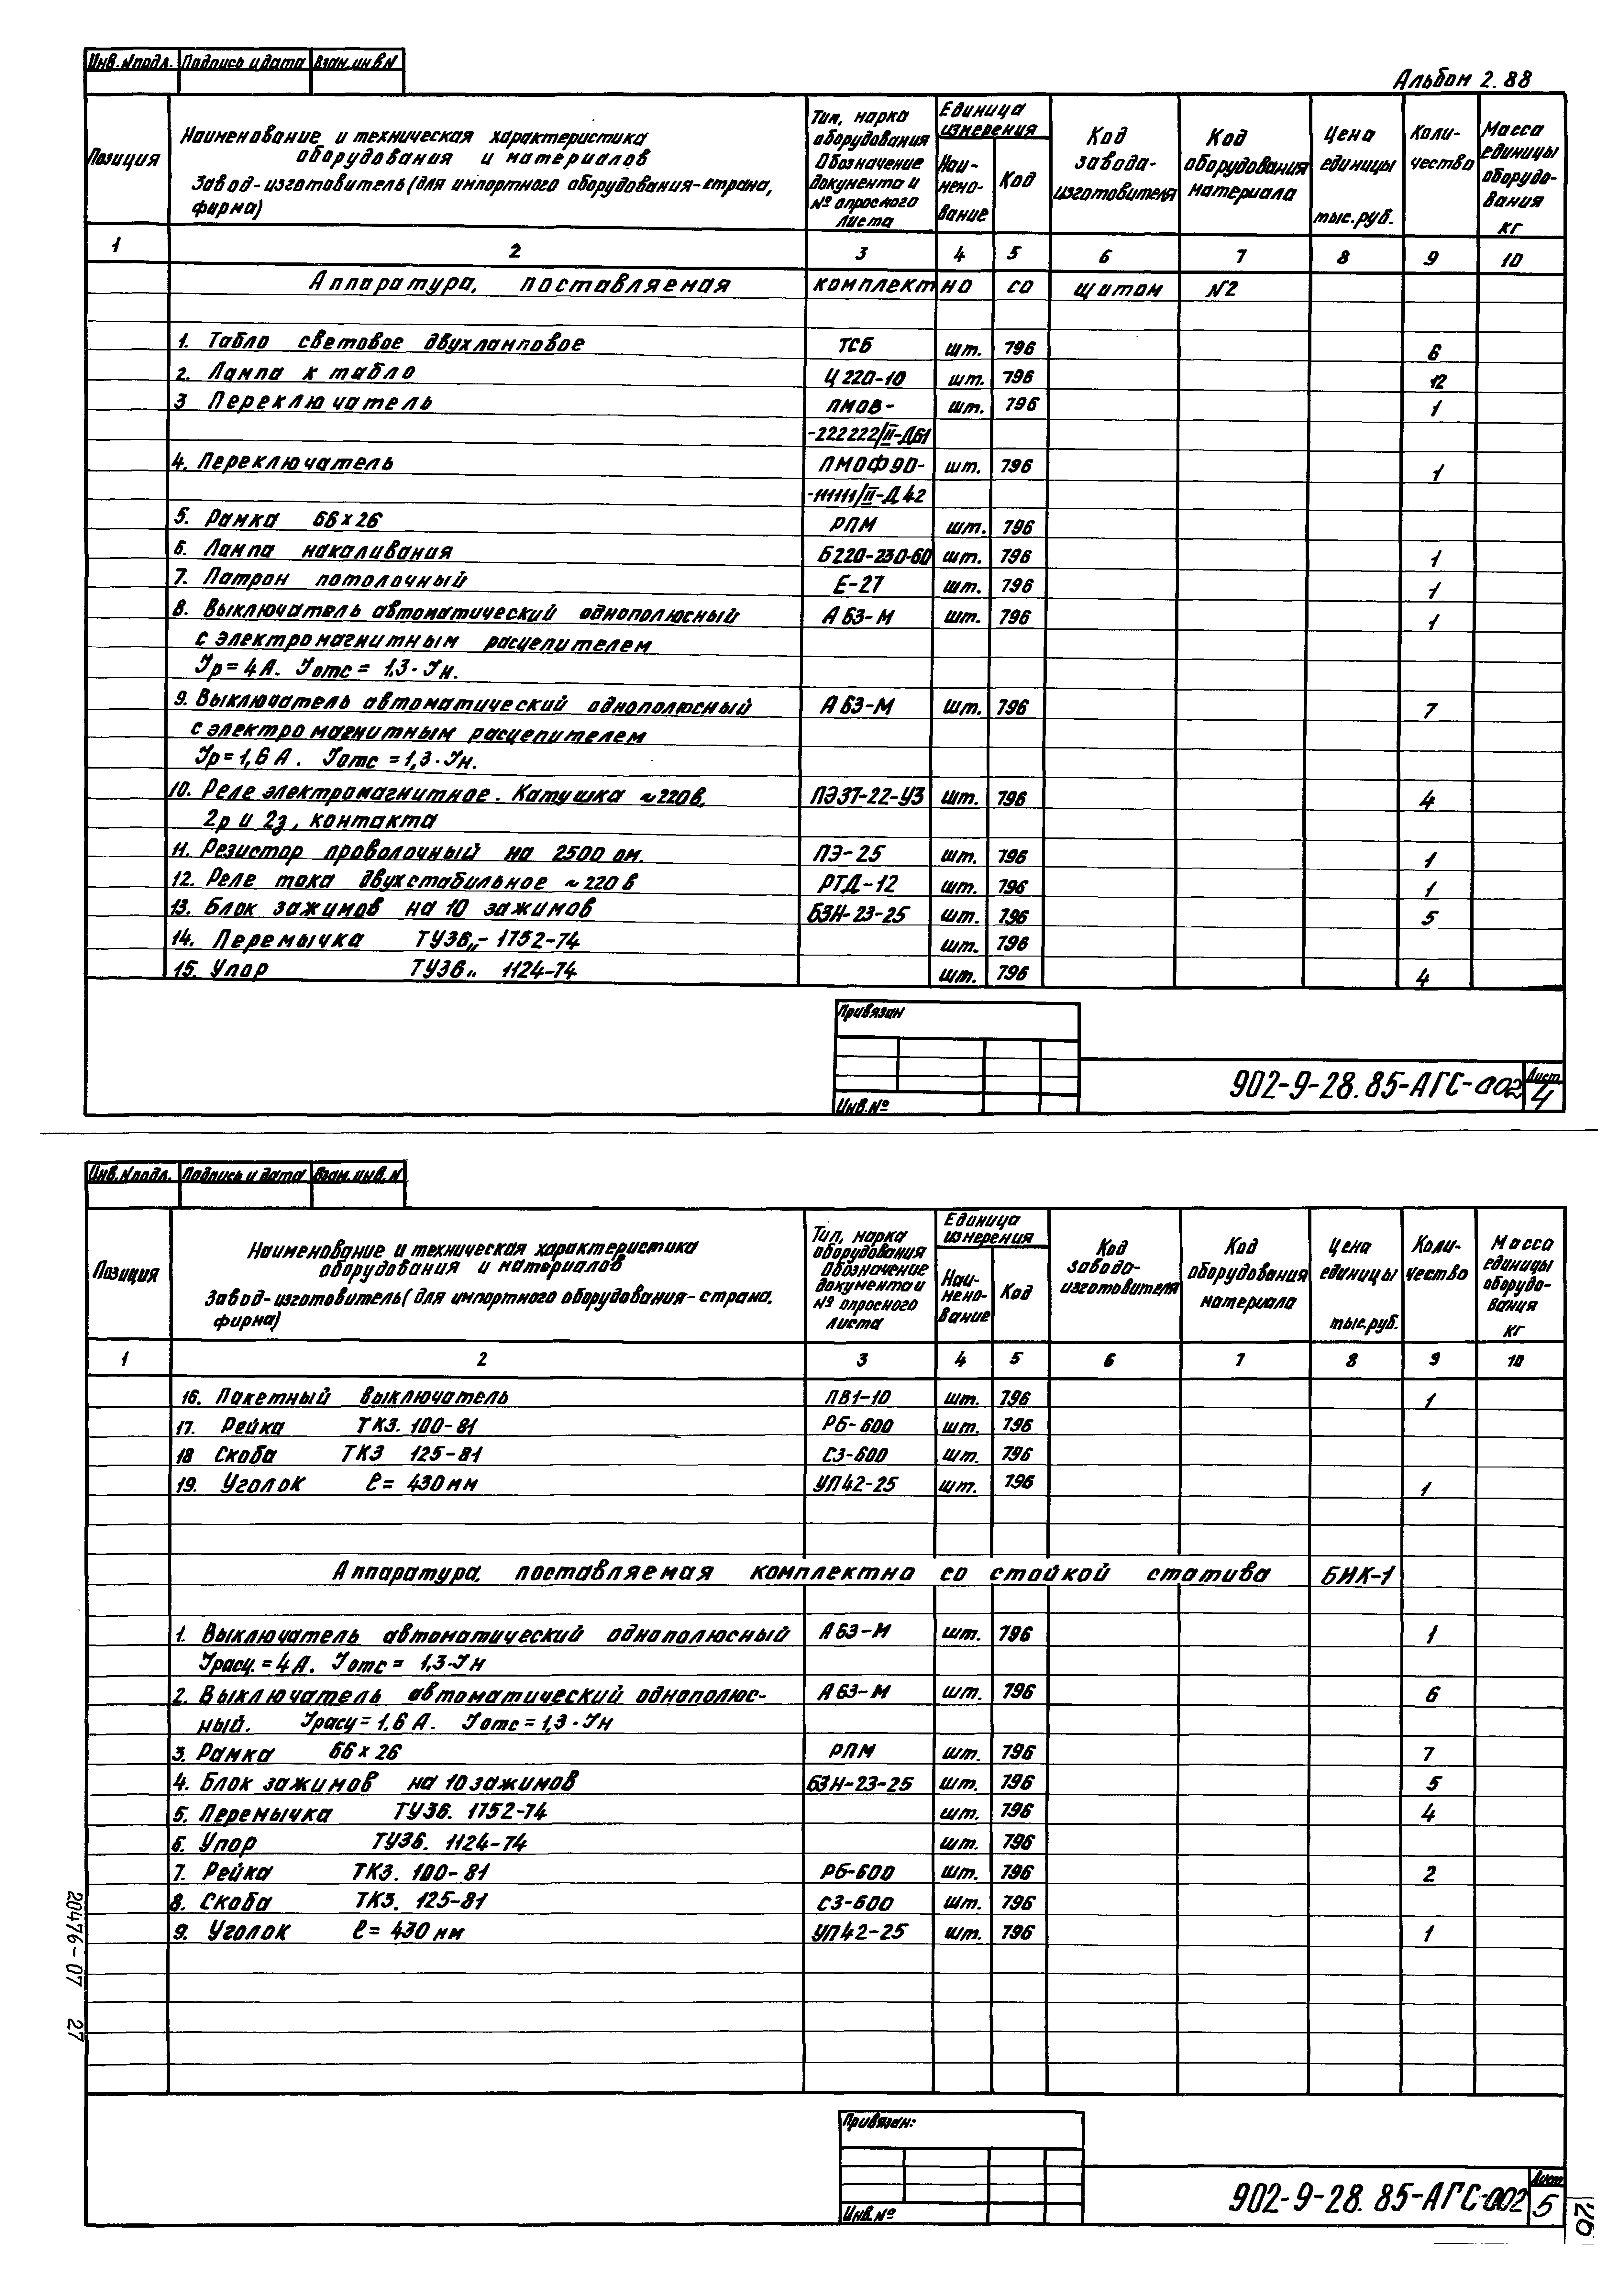 Инв.Nподл. Подпись и дата Взам.инв N
Альбом 2.88
Позиция
Наименование и техническая характеристика
оборудования и материалов
Завод-изготовитель (для импортного оборудования-страна,
фирма)
Тип, марка
оборудования
Обозначение
документа и
№ опросного
листа
Единица
измерения
Наи-
мено-
вание
Код
Код
завода-
изготовителя
Код
оборудования
материала
Цена
единицы
тыс.руб.
Коли-
чество
Масса
единицы
оборудо-
вания
кг
1 2 3 4 5 6 7 8 9 10
Аппаратура, поставляемая комплектно со щитом N2
1. Табло световое двухламповое ТСБ шт. 796 6
2. Лампа к табло Ц220-10 шт. 796 12
3 Переключатель ПМОВ- шт. 796 1
-222222/II-Д61
4. Переключатель ПМОФ90- шт. 796 1
-111111/II-Д42
5. Рамка 66×26 РПМ шт. 796
6. Лампа накаливания Б220-230-60 шт. 796 1
7. Патрон потолочный Е-27 шт. 796 1
8. Выключатель автоматический однополюсный А63-М шт. 796 1
с электромагнитным расцепителем
Iр=4А. Iотс= 1,3·Iн.
9. Выключатель автоматический однополюсный А63-М шт. 796 7
с электромагнитным расцепителем
Iр=1,6А. Iотс=1,3·Iн.
10. Реле электромагнитное. Катушка ~220в, ПЭ37-22-У3 шт. 796 4
2р и 2з, контакта
11. Резистор проволочный на 2500 ом. ПЭ-25 шт. 796 1
12. Реле тока двухстабильное ~220в РТД-12 шт. 796 1
13. Блок зажимов на 10 зажимов БЗН-23-25 шт. 796 5
14. Перемычка ТУ36„-1752-74 шт. 796
15. Упор ТУ36„ 1124-74 шт. 796 4
Привязан
Инв.№
902-9-28.85-АГС-002
Лист
4
Инв.Nподл. Подпись и дата Взам.инв.N
Позиция
Наименование и техническая характеристика
оборудования и материалов
Завод-изготовитель (для импортного оборудования-страна,
фирма)
Тип, марка
оборудования
Обозначение
документа и
№ опросного
листа
Единица
измерения
Наи-
мено-
вание
Код
Код
заводо-
изготовителя
Код
оборудования
материала
Цена
единицы
тыс.руб.
Коли-
чество
Масса
единицы
оборудо-
вания
кг
1 2 3 4 5 6 7 8 9 10
16. Пакетный выключатель ПВ1-10 шт. 796 1
17. Рейка ТК3. 100-81 РБ-600 шт. 796
18 Скоба ТК3 125-81 С3-600 шт. 796
19. Уголок ℓ= 430мм УП42-25 шт. 796 1
Аппаратура, поставляемая комплектно со стойкой статива БИК-1
1. Выключатель автоматический однополюсный А63-М шт. 796 1
Iрасц.=4А. Iотс= 1,3·Iн
2. Выключатель автоматический однополюс- А63-М шт. 796 6
ный. Iрасц=1,6 А. Iотс=1,3·Iн
3. Рамка 66×26 РПМ шт. 796 7
4. Блок зажимов на 10 зажимов БЗН-23-25 шт. 796 5
5. Перемычка ТУ36. 1752-74 шт. 796 4
6. Упор ТУ36. 1124-74 шт. 796
7. Рейка ТК3. 100-81 РБ-600 шт. 796 2
8. Скоба ТК3. 125-81 С3-600 шт. 796
9. Уголок ℓ= 430мм УП42-25 шт. 796 1
20476-07 27
Привязан:
Инв.№
902-9-28.85-АГС-002
Лист
5
26